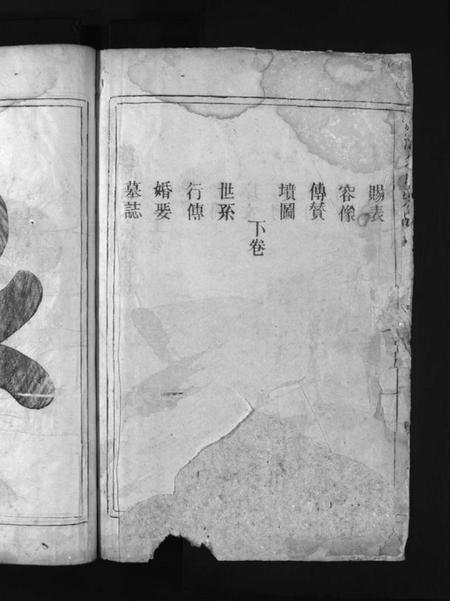 賜表
容像
傳贊
墳圖
下卷
世系
行傳
婚娶
墓誌